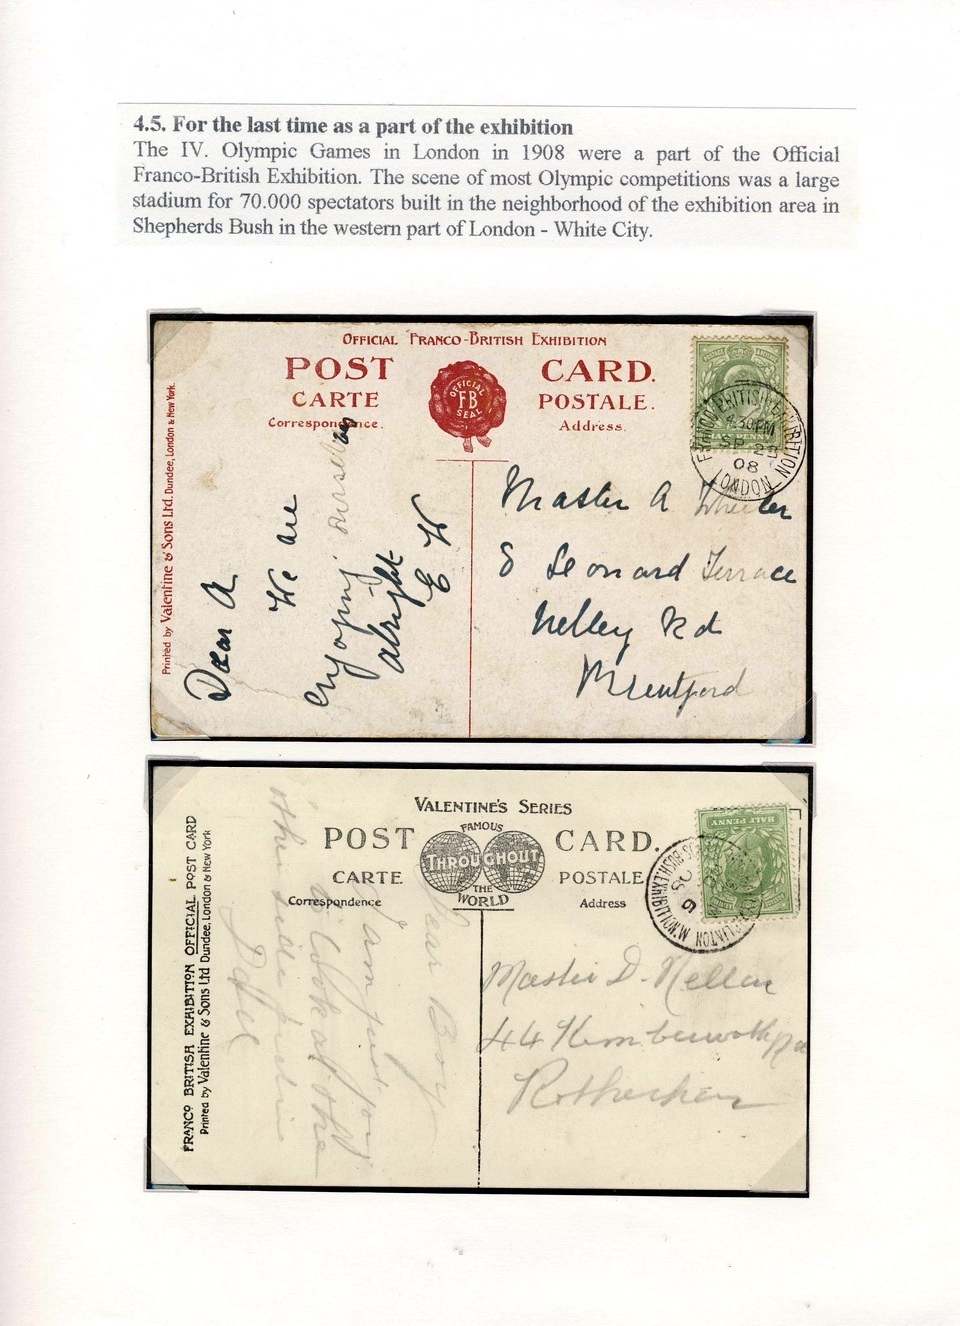 4.5. For the last time as a part of the exhibition
The IV. Olympic Games in London in 1908 were a part of the Official
Franco-British Exhibition. The scene of most Olympic competitions was a large
stadium for 70.000 spectators built in the neighborhood of the exhibition area in
Shepherds Bush in the western part of London - White City.
OFFICIAL FRANCO-BRITISH EXHIBITION
POST CARD.
CARTE POSTALE.
Correspondence. Address.
OFFICIAL
FB
SEAL
Printed by Valentine & Sons Ltd. Dundee, London & New York.
FRANCO BRITISH EXHIBITION
4.30PM
SP 2
08
LONDON
Dear A
We are
enjoying ourselves
alright
E W
Master A Wheeler
8 Leonard Terrace
Nelley Rd
Brentford
VALENTINE'S SERIES
POST CARD.
CARTE POSTALE
Correspondence Address
FAMOUS
THROUGHOUT
THE
WORLD
FRANCO BRITISH EXHIBITION OFFICIAL POST CARD
Printed by Valentine & Sons Ltd Dundee, London & New York
HALF PENNY
BUSH.EXHIBITION
Dear Boy
I am just
other side
Master D. Mellor
44 Kimberworth
Rotherham